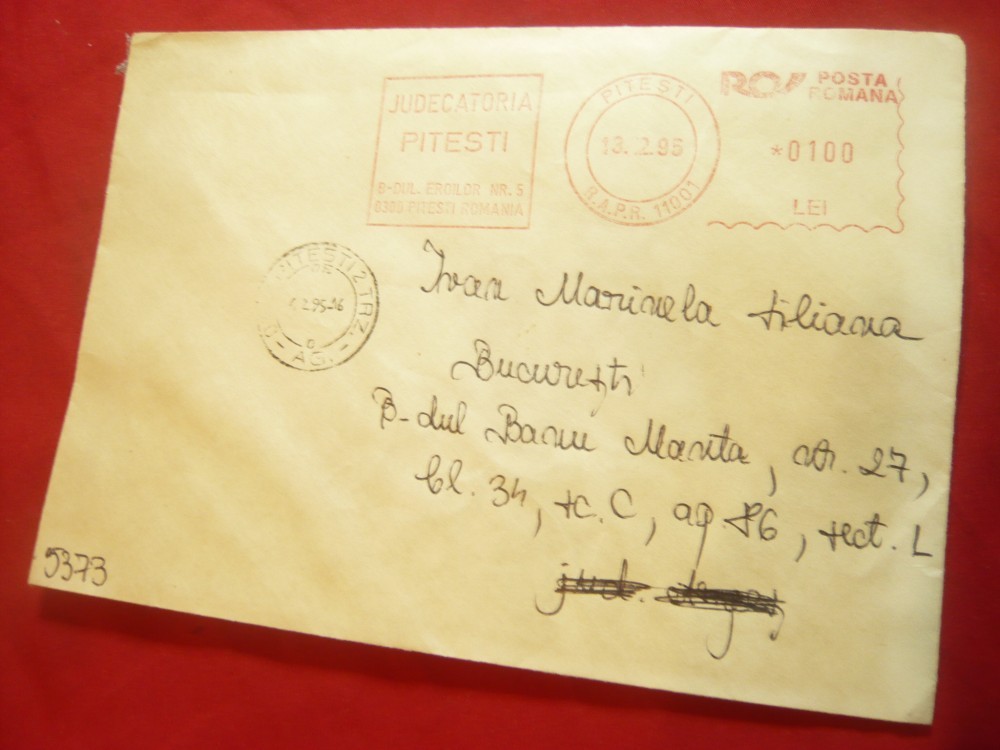 JUDECATORIA
PITESTI
B-DUL. EROILOR NR. 5
0300 PITESTI ROMANIA
PITESTI
13. 2.95
R.A.P.R. 11001
POSTA
ROMANA
*0100
LEI
PITESTI 2 TRZ.
.2.95-16
AG.
Ivan Marinela Liliana
București
B-dul Banu Manta, nr. 27,
bl. 34, sc. C, ap. 86, sect. 1
jud.
5373